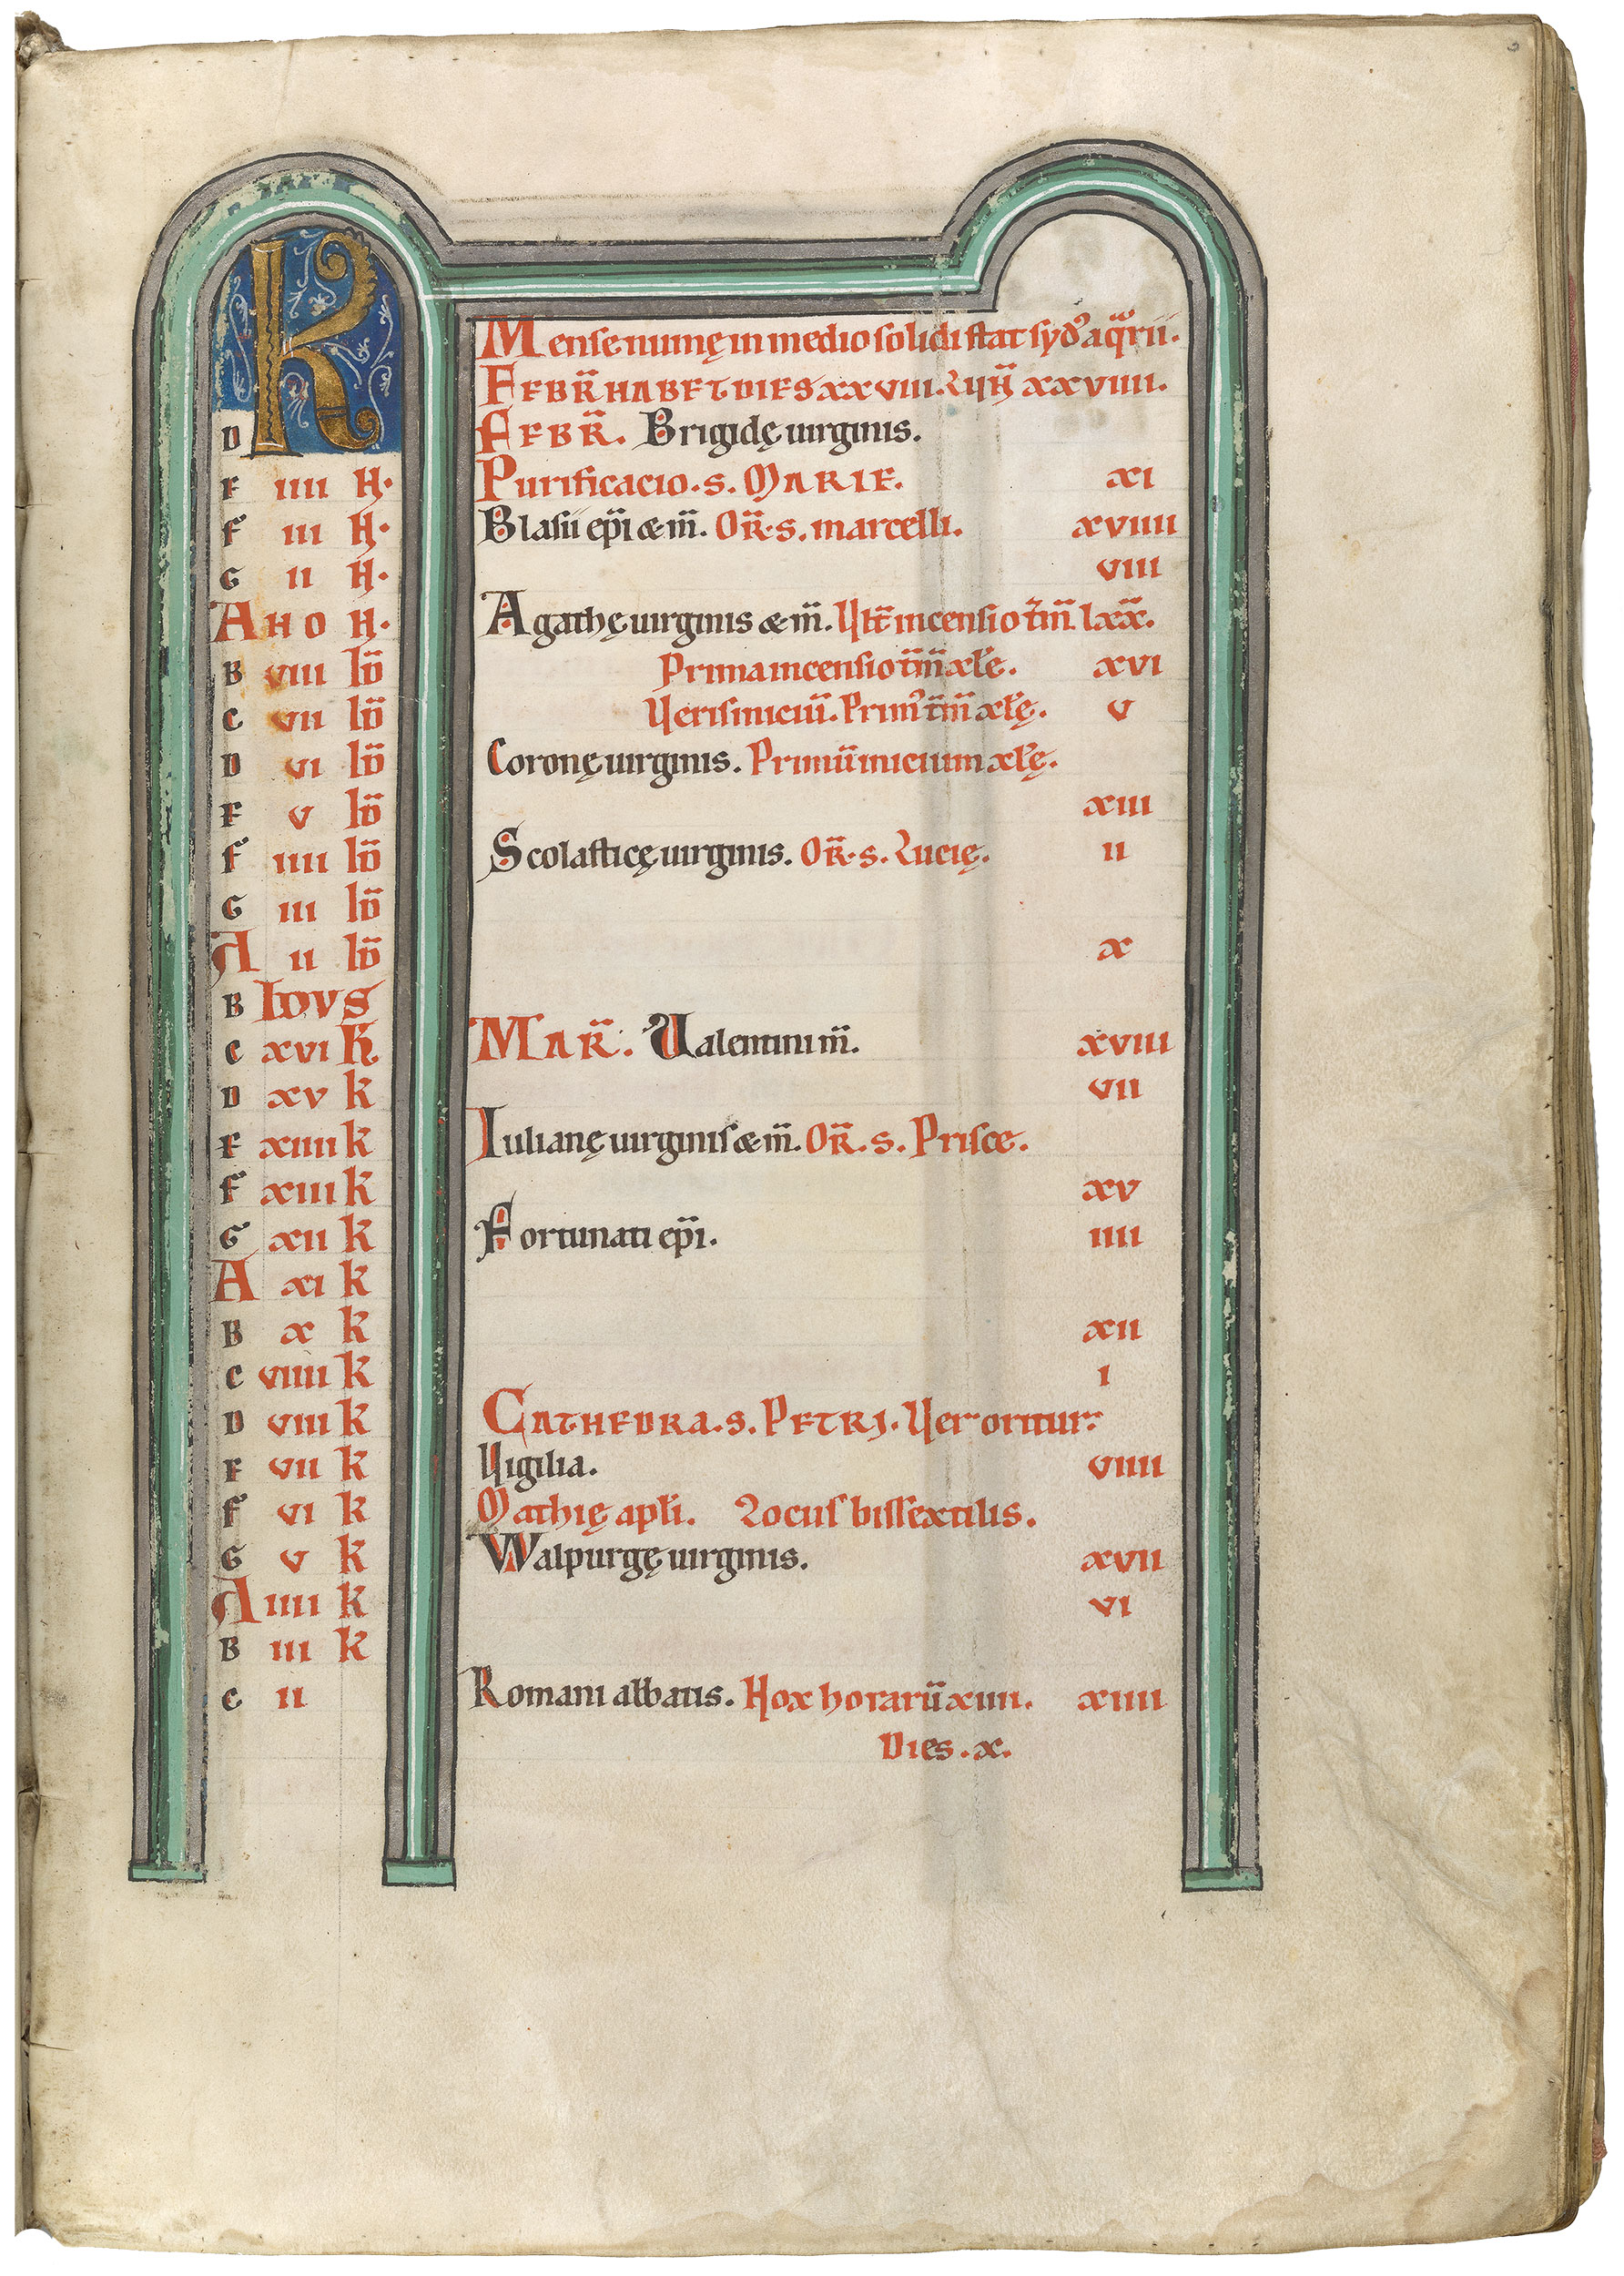 K
Mense numę in medio solidi stat syd᾿ aq̄rii.
FEBR̄ HABET DIES XXVIII. LUN̄ XXVIIII.
D FEBR̄. Brigidę uirginis.
E IIII N. Purificacio. s. MARIE. XI
F III N. Blasii ep̄i & m̄. OR̄. s. marcelli. XVIIII
G II N. VIII
A NO N. Agathę uirginis & m̄. Vlt̄ incensio t̄m̄. lxx̄.
B VIII ID̄ Prima incensio t̄m̄ xl̄e. XVI
C VII ID̄ Veris iniciū. Prim᾿ t̄m̄ xl̄ę. V
D VI ID̄ Coronę uirginis. Primū inicium xl̄ę.
E V ID̄ XIII
F IIII ID̄ Scolasticę uirginis. OR̄. s. Lucię. II
G III ID̄
A II ID̄ X
B IDVS
C XVI K̄ MAR̄. Valentini m̄. XVIII
D XV K VII
E XIIII K Iulianę uirginis & m̄. OR̄. s. Prisce.
F XIII K XV
G XII K Fortunati ep̄i. IIII
A XI K
B X K XII
C VIIII K I
D VIII K CATHEDRA. s. PETRI. Ver oritur.
E VII K Vigilia. VIIII
F VI K Mathię apl̄i. Locus bissextilis.
G V K Walpurgę uirginis. XVII
A IIII K VI
B III K
C II Romani abbatis. Nox horarū XIIII. XIIII
Dies. X.